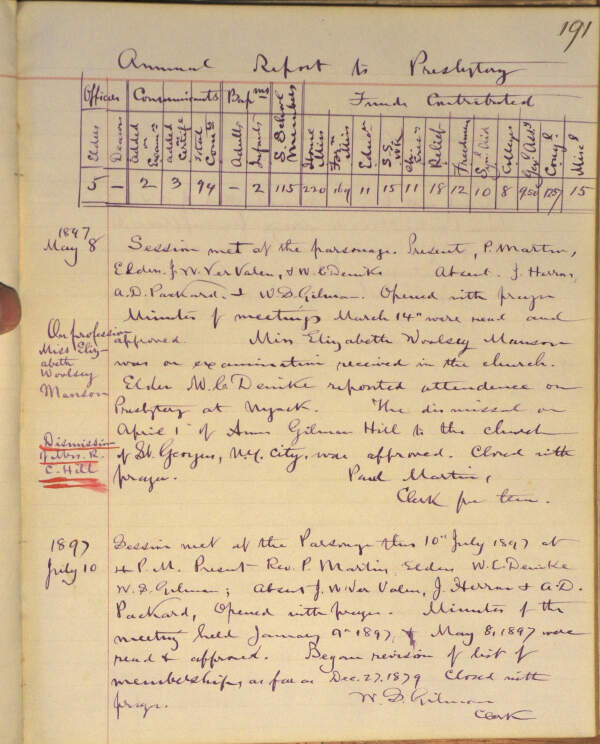 191
Annual Report to Presbytery
Officers Communicants Bapms Funds Contributed
Elders Deacons Added on Exam'n Added Certife Total Com'ts Adults Infants S. School Members Home Miss For'n Miss Educ'n S.S. Wk Ch. Erec'n Relief Freedmen S. Aid Colleges Gen'l Ass'y Cong'l Misc'l
5 — 2 3 94 — 2 115 220 11 15 11 18 12 10 8 15
1897
May 8
Session met at the parsonage. Present, P. Martin,
Elders J. W. Ver Valen, & W. C. Denike Absent J. Herron,
A. D. Packard, & W. D. Gilman. Opened with prayer
Minutes of meetings March 14" were read and
approved. Miss Elizabeth Woolsey Manson
was on examination received in the church.
Elder W. C. Denike reported attendence on
Presbytery at Nyack. The dismissal on
April 1" of Anna Gilman Hill to the church
of St. Georges, N.Y. City, was approved. Closed with
prayer. Paul Martin,
Clerk pro tem.
On profession
Miss Eliz-
abeth
Woolsey
Manson
Dismission
of Mrs. R.
C. Hill
1897
July 10
Session met at the Parsonage this 10" July 1897 at
4 P.M. Present Rev. P. Martin, Elders W. C. Denike
W. D. Gilman; Absent J. W. Ver Valen, J. Herron & A. D.
Packard, Opened with prayer. Minutes of the
meeting held January 9" 1897, & May 8, 1897 were
read & approved. Began revision of list of
membership, as far as Dec. 27, 1879 Closed with
prayer. W. D. Gilman
Clerk